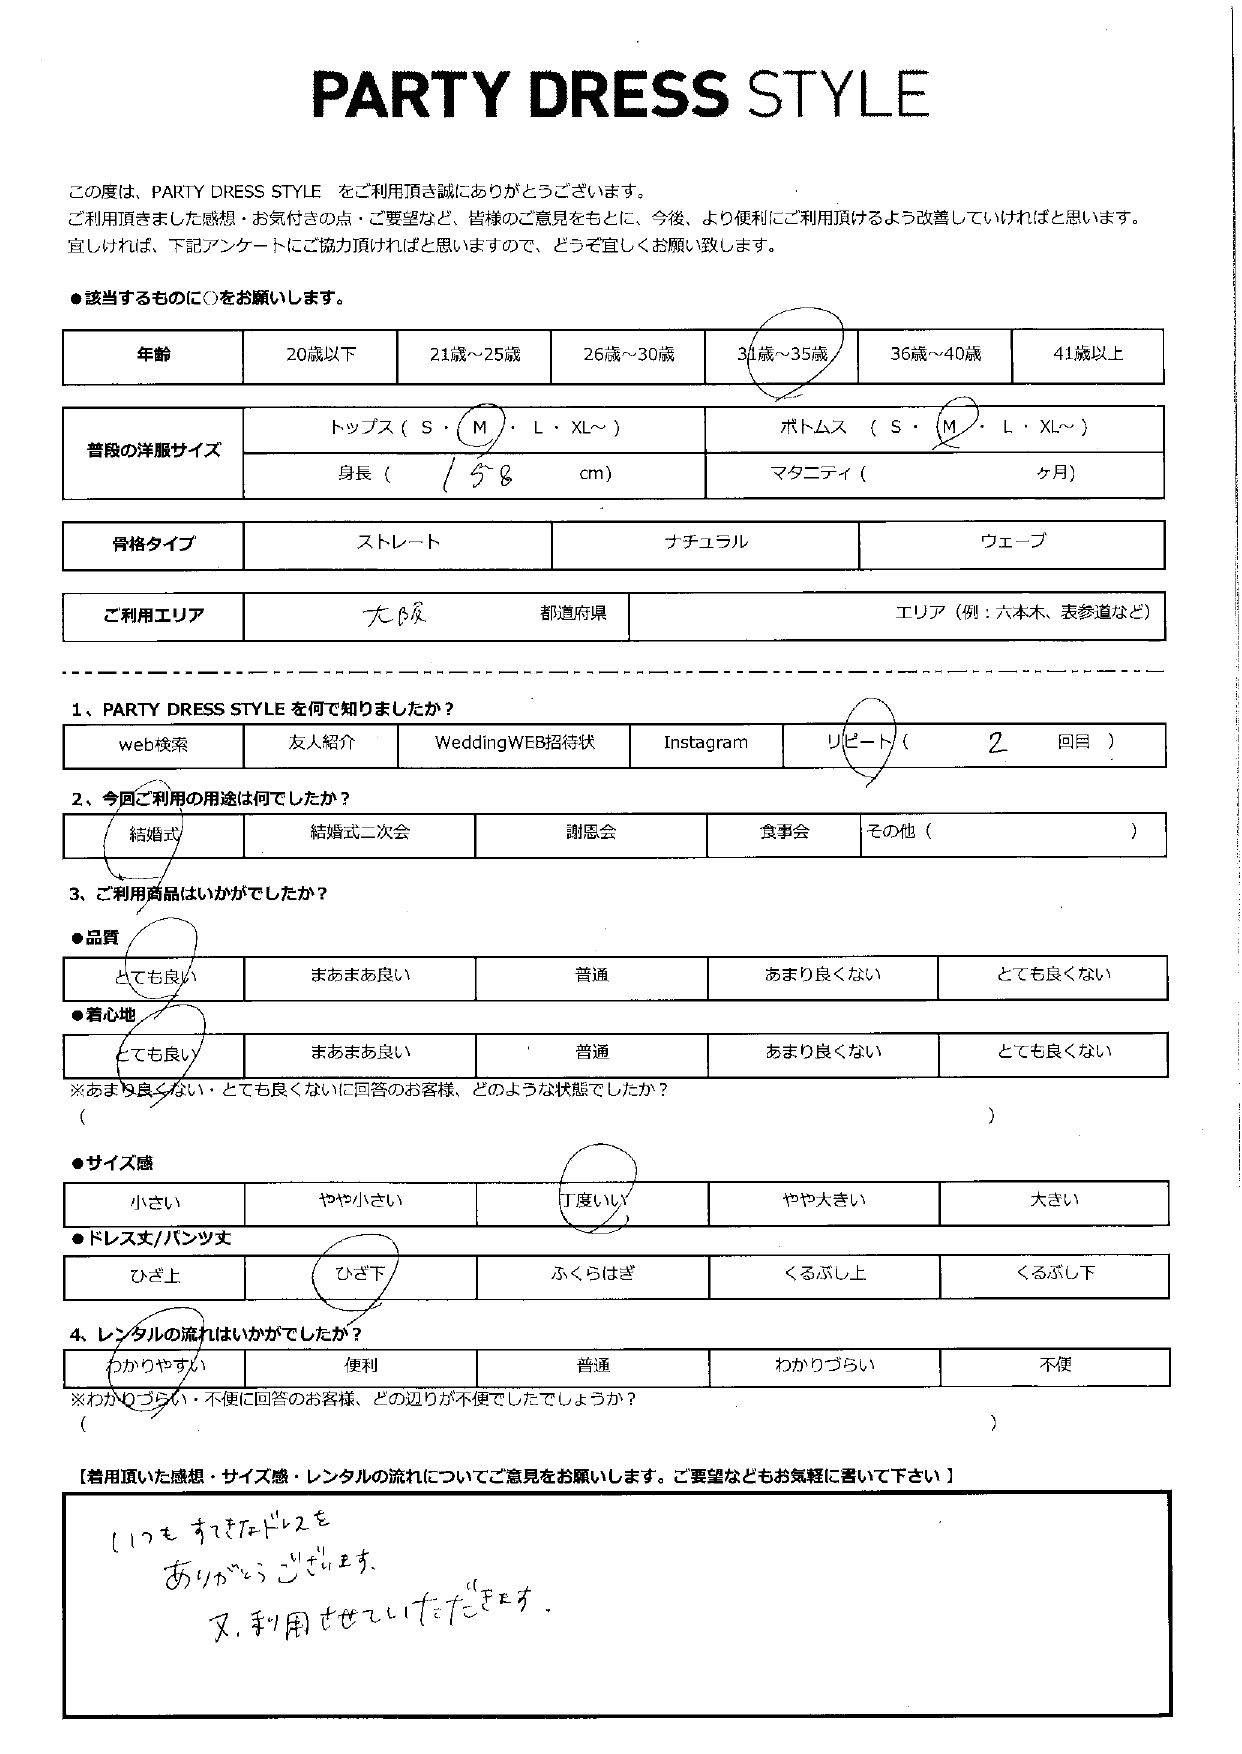 PARTY DRESS STYLE
この度は、PARTY DRESS STYLE をご利用頂き誠にありがとうございます。
ご利用頂きました感想・お気付きの点・ご要望など、皆様のご意見をもとに、今後、より便利にご利用頂けるよう改善していければと思います。
宜しければ、下記アンケートにご協力頂ければと思いますので、どうぞ宜しくお願い致します。
●該当するものに○をお願いします。
年齢 20歳以下 21歳～25歳 26歳～30歳 31歳～35歳 36歳～40歳 41歳以上
普段の洋服サイズ トップス ( S ・ M ・ L ・ XL～ ) ボトムス ( S ・ M ・ L ・ XL～ )
身長 ( 158 cm) マタニティ ( ヶ月)
骨格タイプ ストレート ナチュラル ウェーブ
ご利用エリア 大阪 都道府県 エリア（例：六本木、表参道など）
1、PARTY DRESS STYLE を何で知りましたか？
web検索 友人紹介 WeddingWEB招待状 Instagram リピート ( 2 回目 )
2、今回ご利用の用途は何でしたか？
結婚式 結婚式二次会 謝恩会 食事会 その他 ( )
3、ご利用商品はいかがでしたか？
●品質
とても良い まあまあ良い 普通 あまり良くない とても良くない
●着心地
とても良い まあまあ良い 普通 あまり良くない とても良くない
※あまり良くない・とても良くないに回答のお客様、どのような状態でしたか？
( )
●サイズ感
小さい やや小さい 丁度いい やや大きい 大きい
●ドレス丈/パンツ丈
ひざ上 ひざ下 ふくらはぎ くるぶし上 くるぶし下
4、レンタルの流れはいかがでしたか？
わかりやすい 便利 普通 わかりづらい 不便
※わかりづらい・不便に回答のお客様、どの辺りが不便でしたでしょうか？
( )
【着用頂いた感想・サイズ感・レンタルの流れについてご意見をお願いします。ご要望などもお気軽に書いて下さい 】
いつもすてきなドレスを
ありがとうございます。
又、利用させていただきます.